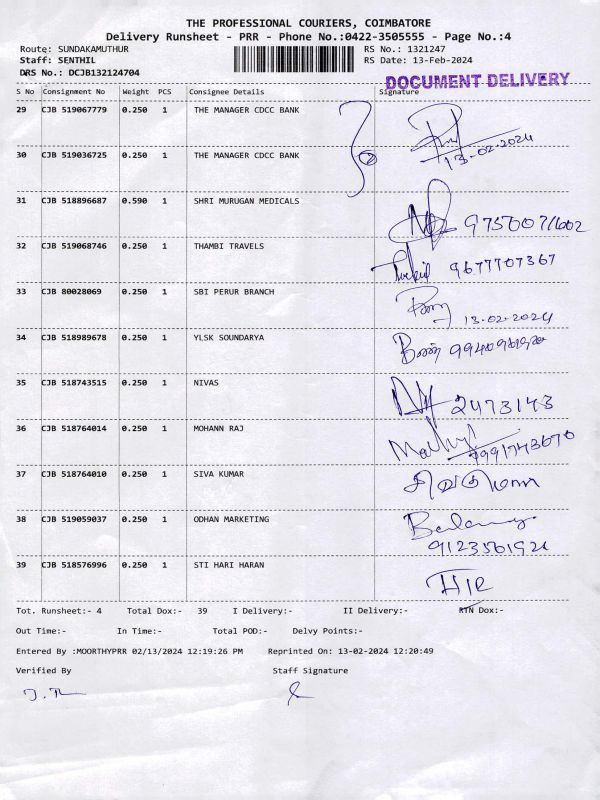 THE PROFESSIONAL COURIERS, COIMBATORE
Delivery Runsheet - PRR - Phone No.:0422-3505555 - Page No.:4
Route: SUNDAKAMUTHUR RS No.: 1321247
Staff: SENTHIL RS Date: 13-Feb-2024
DRS No.: DCJB132124704
DOCUMENT DELIVERY
S No Consignment No Weight PCS Consignee Details Signature
29 CJB 519067779 0.250 1 THE MANAGER CDCC BANK
30 CJB 519036725 0.250 1 THE MANAGER CDCC BANK 13-02-2024
31 CJB 518896687 0.590 1 SHRI MURUGAN MEDICALS
32 CJB 519068746 0.250 1 THAMBI TRAVELS 9677707367
33 CJB 80028069 0.250 1 SBI PERUR BRANCH 13-02-2024
34 CJB 518989678 0.250 1 YLSK SOUNDARYA
35 CJB 518743515 0.250 1 NIVAS 2473143
36 CJB 518764014 0.250 1 MOHANN RAJ
37 CJB 518764010 0.250 1 SIVA KUMAR சிவகுமார்
38 CJB 519059037 0.250 1 ODHAN MARKETING
39 CJB 518576996 0.250 1 STI HARI HARAN
Tot. Runsheet:- 4 Total Dox:- 39 I Delivery:- II Delivery:- RTN Dox:-
Out Time:- In Time:- Total POD:- Delvy Points:-
Entered By :MOORTHYPRR 02/13/2024 12:19:26 PM Reprinted On: 13-02-2024 12:20:49
Verified By Staff Signature